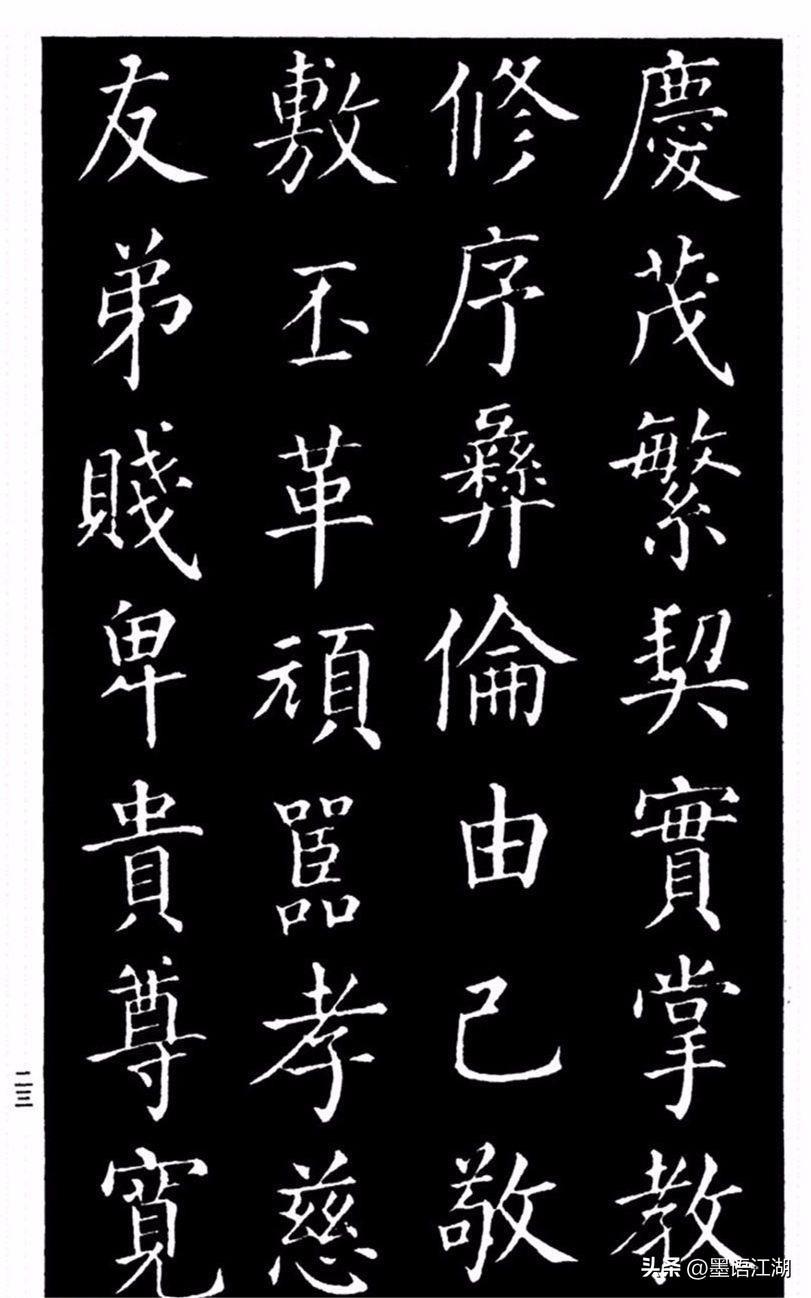 慶茂繁契實掌教
修序彝倫由己敬
敷丕革頑嚚孝慈
友弟賤卑貴尊寬
二三
头条 @墨语江湖